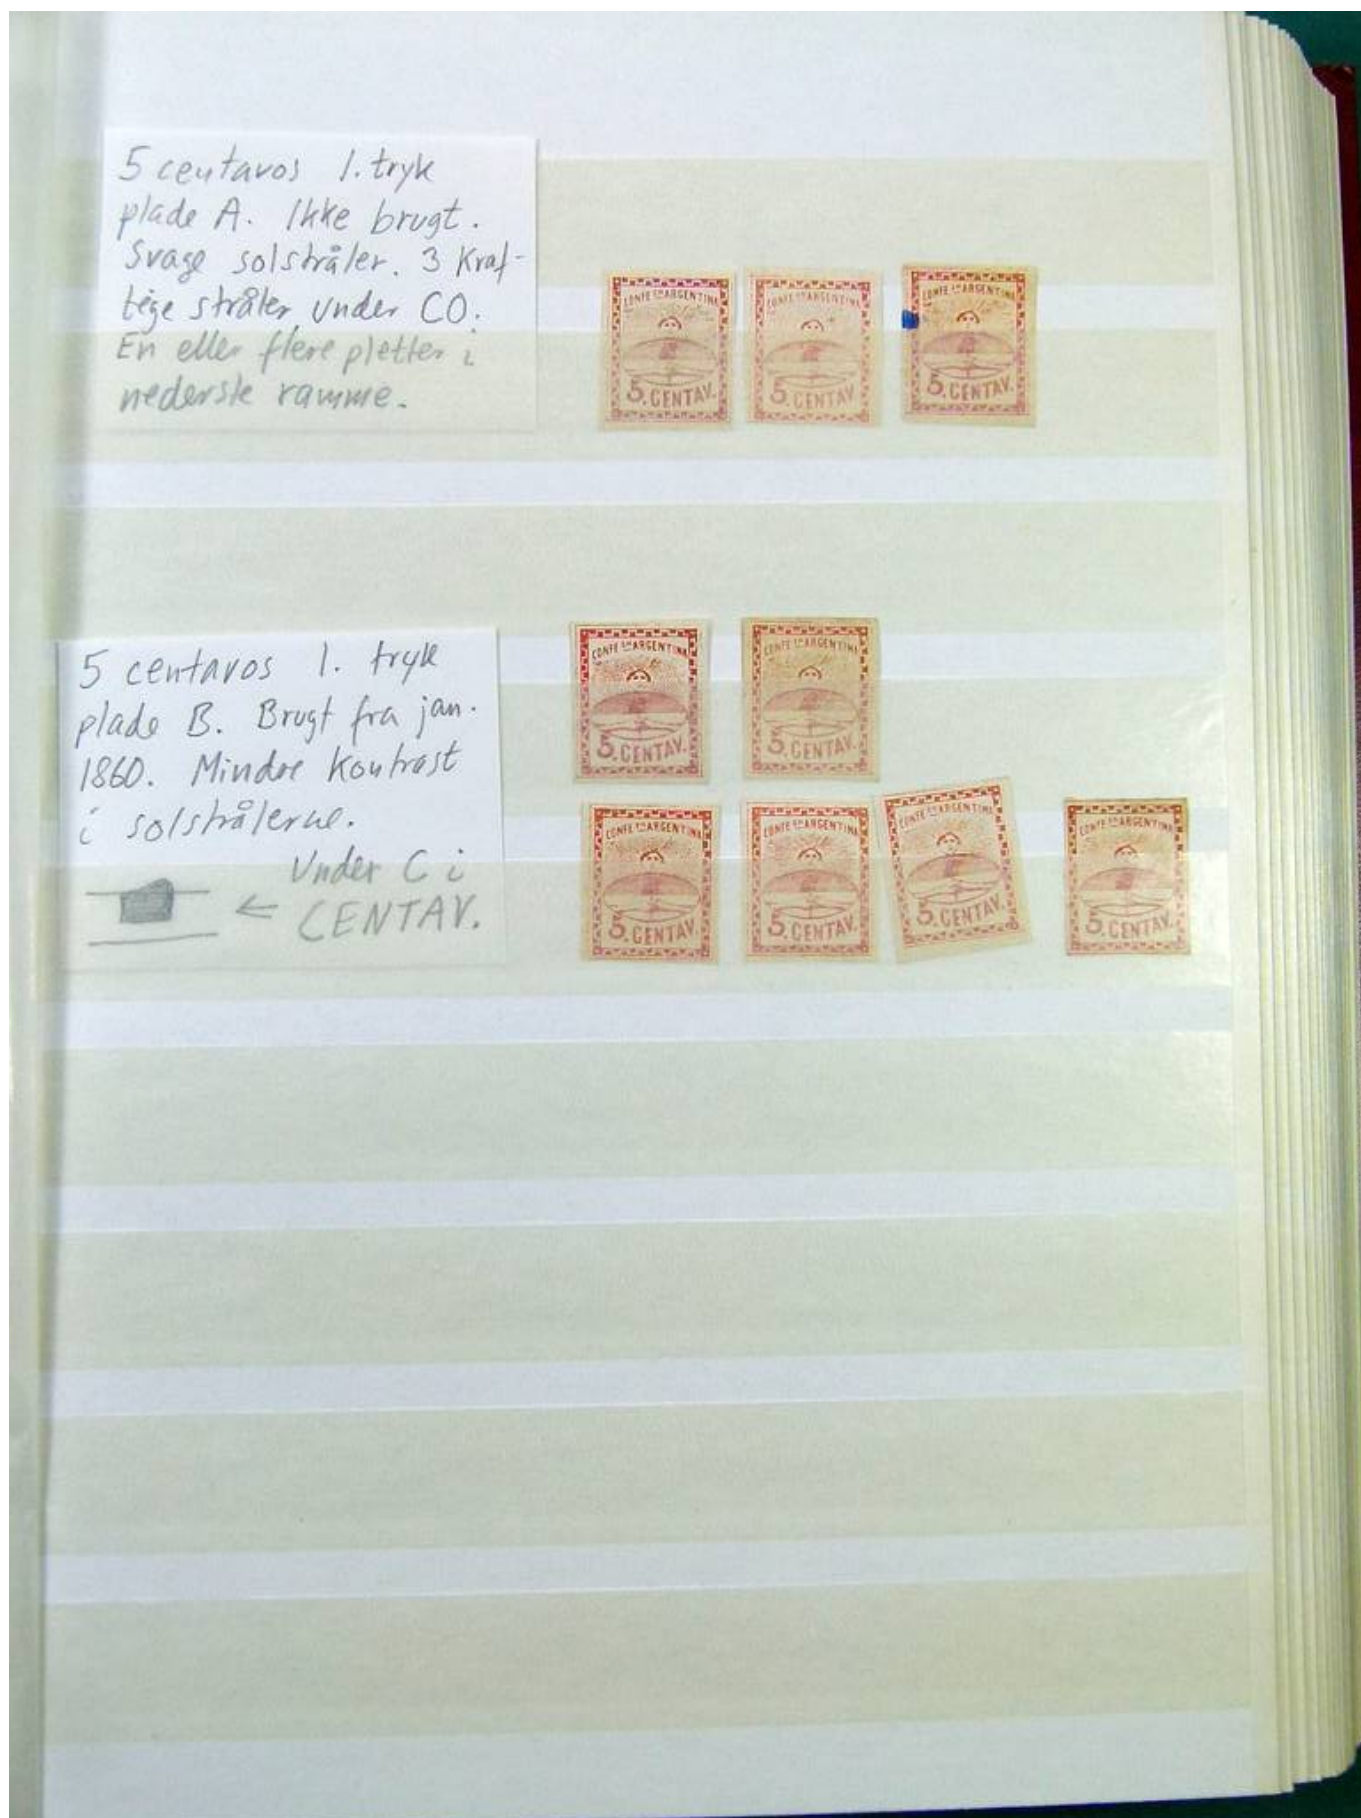 5 centavos 1. tryk
plade A. Ikke brugt.
Svage solstråler. 3 kraf-
tige stråler under CO.
En eller flere pletter i
nederste ramme.
CONFEÓN ARGENTINA
5. CENTAV.
CONFEÓN ARGENTINA
5. CENTAV.
CONFEÓN ARGENTINA
5. CENTAV.
5 centavos 1. tryk
plade B. Brugt fra jan.
1860. Mindre kontrast
i solstrålerne.
Under C i
← CENTAV.
CONFEÓN ARGENTINA
5. CENTAV.
CONFEÓN ARGENTINA
5. CENTAV.
CONFEÓN ARGENTINA
5. CENTAV.
CONFEÓN ARGENTINA
5. CENTAV.
CONFEÓN ARGENTINA
5. CENTAV.
CONFEÓN ARGENTINA
5. CENTAV.